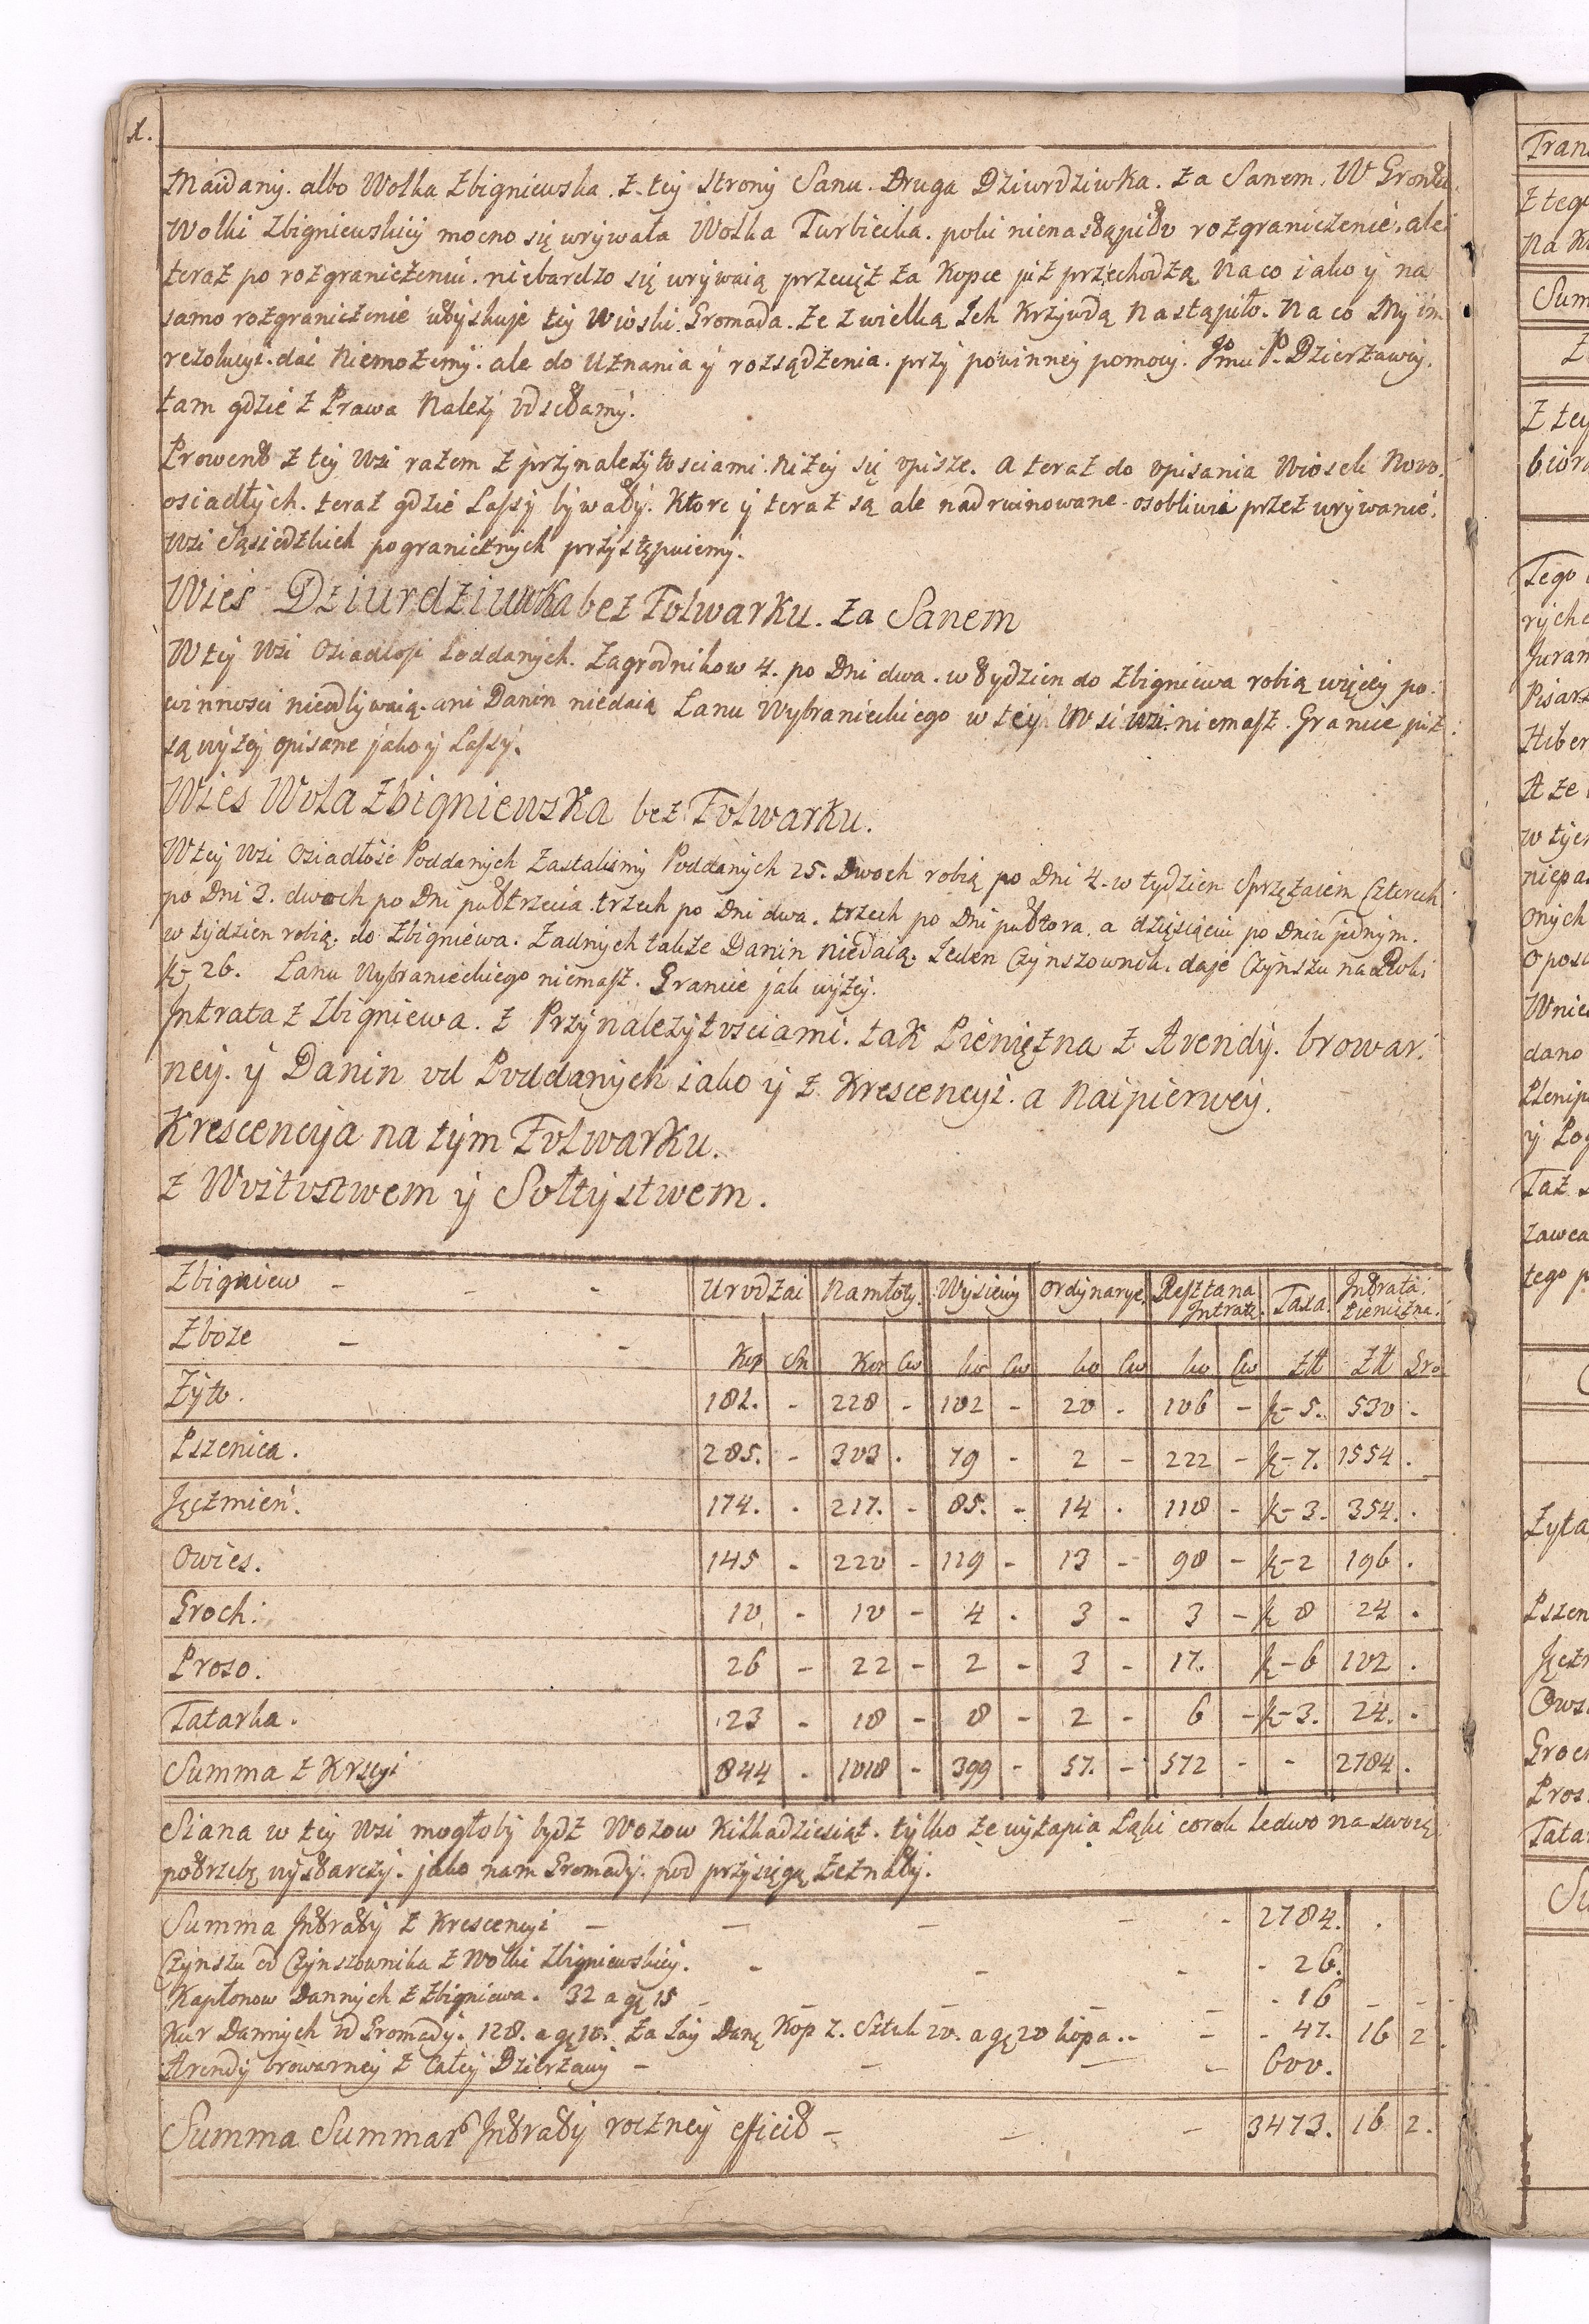 1.
Maidany. albo Wolka Zbigniewska. z tey strony Sanu. Druga Dziurdziwka. za Sanem. W Gronta
Wolki Zbigniewskiey mocno się wrywała Wolka Turbiecka. poki nienastąpiło rozgraniczenie, ale
teraz po rozgraniczeniu. niebardzo się wrywaią przecięz za Kopce juz przechodzą Na co iako y na
samo rozgraniczenie utyskuje tey Wioski Gromada. Ze z wielką Jch Krzywdą Nastąpiło. Na co My im
rezolucyi. dai Niemozemy. ale do Uznania y rozsądzenia. przy powinney pomocy. Jmci P. Dzierzawcy.
tam gdzie z Prawa Nalezy odsełamy.
Prowent z tey Wsi razem z przynalezytosciami. Nizey się opisze. a teraz do opisania Wiosek Nowo
osiadłych. teraz gdzie Lassy bywały. Ktore y teraz są ale nadruinowane osobliwie przez wrywanie
Wsi Sąsiedzkich pogranicznych przystępuiemy.
Wies Dziurdziuwka bez Folwarku. za Sanem
W tey Wsi Osiadłosi Poddanych. Zagrodnikow 4. po Dni dwa. w tydzien do Zbigniewa robią więcey po
winnosci nieodbywaią. ani Danin niedaią Lanu Wybranieckiego w tey Wsi niemasz. Granice juz
są wyzey opisane jako y Lassy.
Wies Wola Zbigniewska bez Folwarku.
W tey Wsi Osiadłośc Poddanych Zastalismy Poddanych 25. Dwoch robią po Dni 4. w tydzien Sprzęzaiem Czterech
po Dni 3. dwoch po Dni pułtrzecia. trzech po Dni dwa. trzech po Dni pułtora. a dziesięciu po Dniu jednym.
w tydzien robią. do Zbigniewa. Zadnych takze Danin niedaią. Jeden Czynszownik. daje Czynszu na Roki
26. Lanu Wybranieckiego niemasz. Granice jak wyzey.
Jntrata z Zbigniewa. z Przynalezytosciami. tak Pieniezna z Arendy. browar.
ney. y Danin od Poddanych iako y z Krescencyi. a Naipierwey.
Krescencyja na tym Folwarku.
z Woitostwem y Sołtystwem.
Zbigniew - - - Urodzai Namłoty. Wysiewy Ordynarye. Resztana Jntratę. Taxa. Jntrata pieniezna.
Zboze - - Kor Sn Kor Cw ko Cw ko Cw ko Cw Złł Złł Gro
Zyto. 181. - 228 - 102 - 20 - 106 - 5. 530 -
Pszenica. 285. - 303 . 79 - 2 - 222 - 7. 1554 .
Jęczmień. 174. . 217. - 85. - 14 . 118 - 3. 354. .
Owies. 145 - 220 - 119 - 13 - 98 - 2 196 .
Groch. 10 - 10 - 4 . 3 - 3 - 8 24 .
Proso. 26 - 22 - 2 - 3 - 17. 6 102 .
Tatarka. 23 - 18 - 8 - 2 - 6 - 3. 24. -
Summa z Krscyi 844 . 1018 - 399 - 57. - 572 - - 2784 .
Siana w tey Wsi mogłoby bydz Wozow Kilkadziesiąt. tylko ze wytapia Ląki corok ledwo na swoię
potrzebę wystarczy. jako nam Gromady. pod przysięgą zeznały.
Summa Jntraty z Krescencyi - - - - - 2784. .
Czynszu od Czynszownika z Wolki Zbigniewskiey. - - - - 26.
Kapłonow Dannych z Zbigniewa. 32 a g 15 - - - - - 16 - -
Kur Dannych od Gromady. 128. a g 10. Za Jay Danę Kop 7. Sztuk 20. a g 20 kopa. - - - 47. 16 2.
Arendy browarney z całey Dzierzawy - - - - 600.
Summa Summar Jntraty roczney efficit - - - 3473. 16 2.